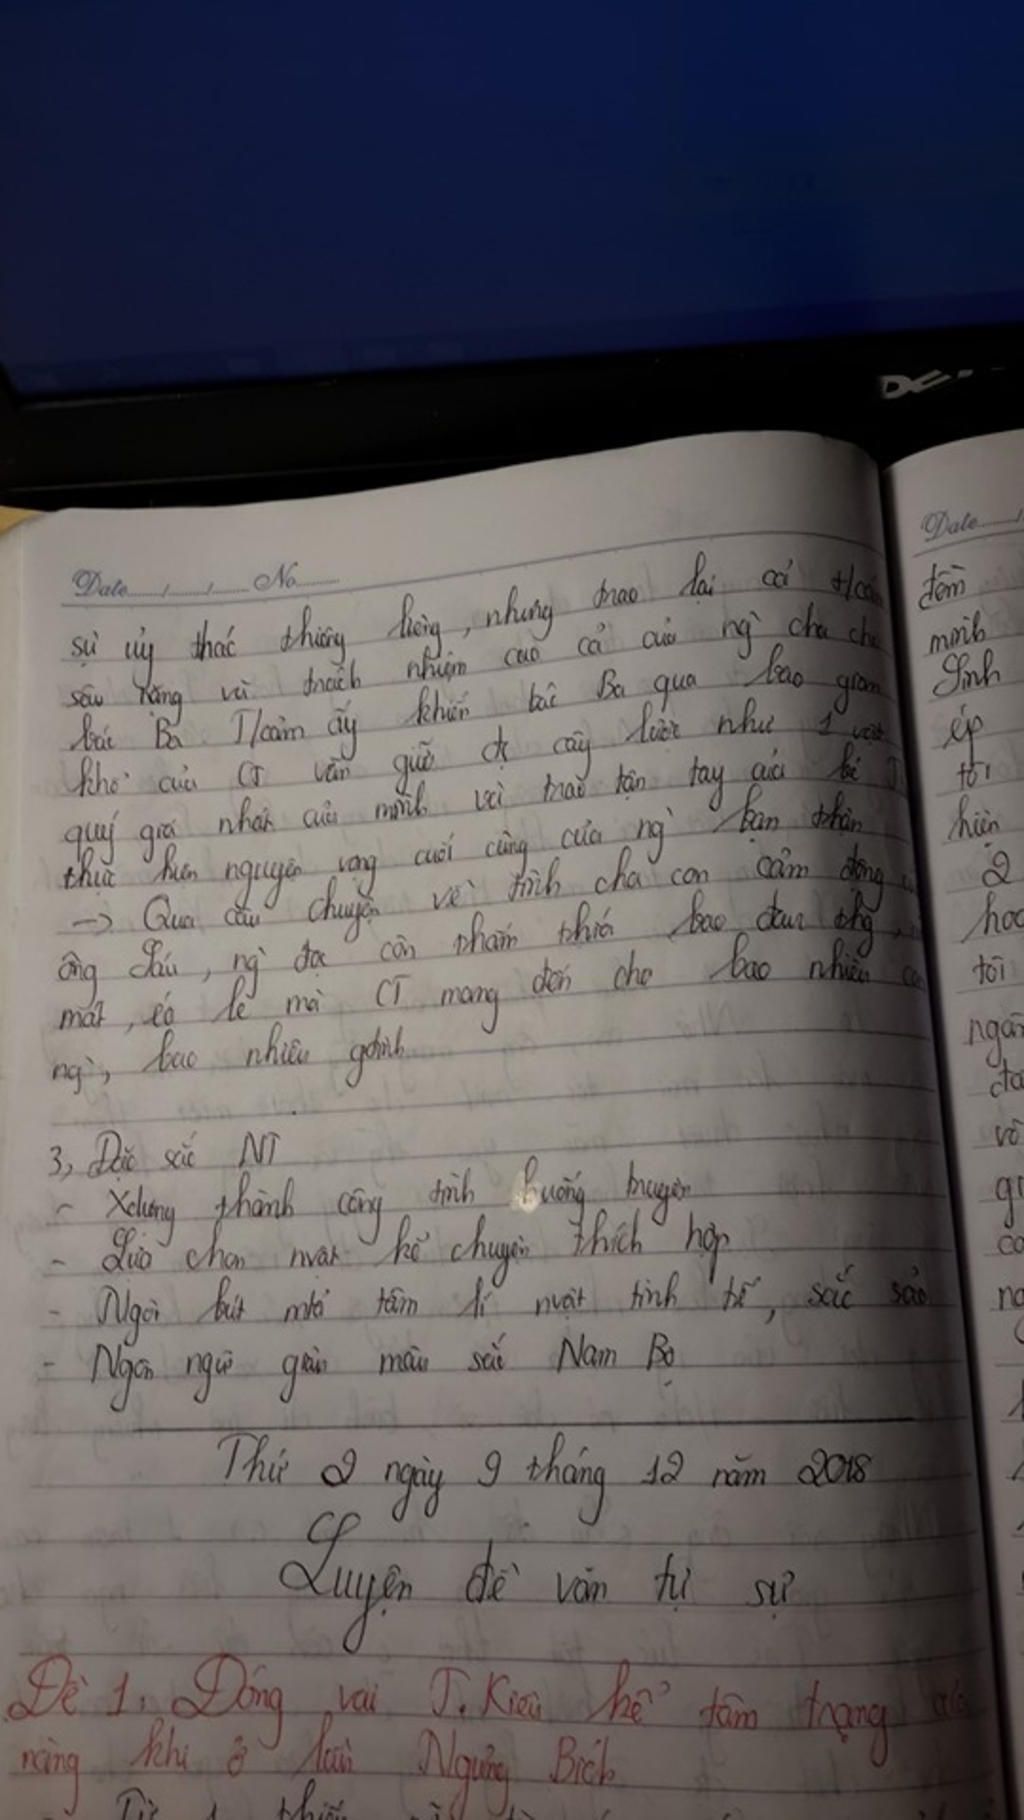 DELL
Date...../...../..... No.......
sự ủy thác thiêng liêng, nhưng trao lại cả t/cảm
sâu nặng và trách nhiệm cao cả của ng` cha cho
bác Ba T/cảm ấy khiến bác Ba qua bao gian
khổ của CT vẫn giữ đc cây lược như 1 vật
quý giá nhất của mình và trao tận tay của bé
thực hiện nguyện vọng cuối cùng của ng` bạn thân
-> Qua câu chuyện về tình cha con cảm động
ông Sáu, ng` đọc còn thấm thía bao đau thg,
mất, éo le mà CT mang đến cho bao nhiêu con
ng`, bao nhiêu gđình
3, Đặc sắc NT
- Xdựng thành công tình huống truyện
- Lựa chọn nvật kể chuyện thích hợp
- Ngòi bút mtả tâm lí nvật tinh tế, sắc sảo
- Ngôn ngữ giàu màu sắc Nam Bộ
Thứ 2 ngày 9 tháng 12 năm 2018
Luyện đề văn tự sự
Đề 1. Đóng vai T. Kiều kể tâm trạng của
nàng khi ở lầu Ngưng Bích
Date...../
đồn
mình
Sinh
ép
tôi
hiện
2
tôi
vô